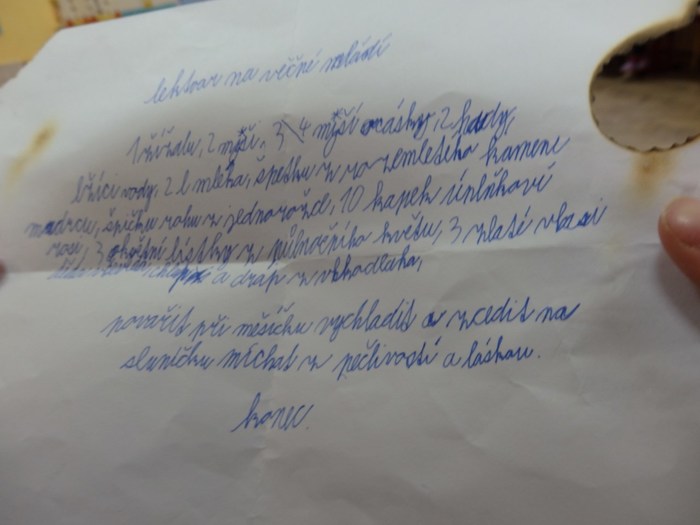 lektvar na věčné mládí
1 žížalu, 2 myši, 3 4 myší ocásky, 2 hady,
lžíci vody, 2 l mléka, špetku z rozemletého kamene
mudrců, špičku rohu z jednorožce, 10 kapek úplňkové
rosy, 3 okvětní lístky z půlnočního květu, 3 zlaté vlasy
a dráp z vlkodlaka,
povařit při měsíčku vychladit a zcedit na
sluníčku míchat z pečlivostí a láskou.
konec.